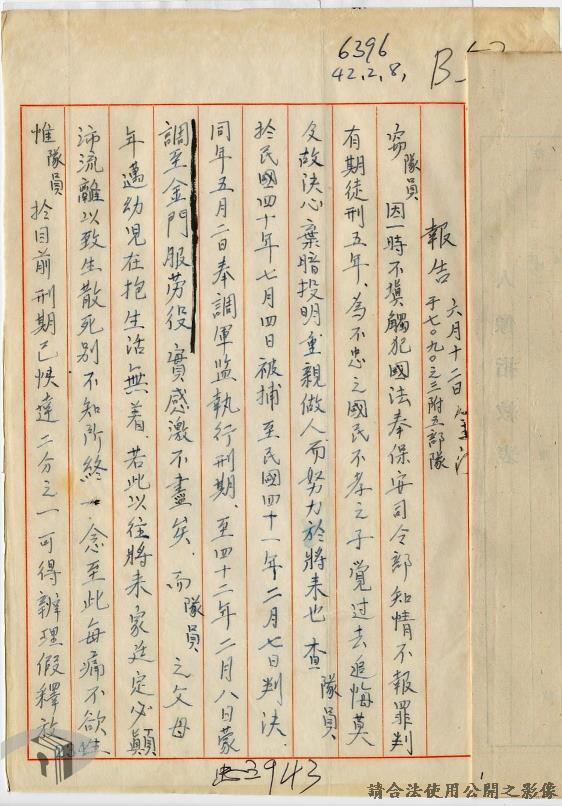 6396
42,2,8,
報告 六月十二日
于七〇九〇之三附五部隊
竊隊員因一時不慎觸犯國法奉保安司令部知情不報罪判
有期徒刑五年、為不忠之國民不孝之子覺過去追悔莫
及故決心棄暗投明重親做人、而努力於將來也 查隊員
於民國四十年七月四日被捕至民國四十一年二月七日判決.
同年五月二日奉調軍監執行刑期、至四十二年二月八日蒙
調至金門服勞役 實感激不盡矣、而隊員之父母
年邁幼兒在抱生活無着、若此以往將來家廷定必顛
沛流離以致生散死別不知所終一念至此每痛不欲生
惟隊員於目前刑期已快達二分之一可得辦理假釋故
3943
請合法使用公開之影像